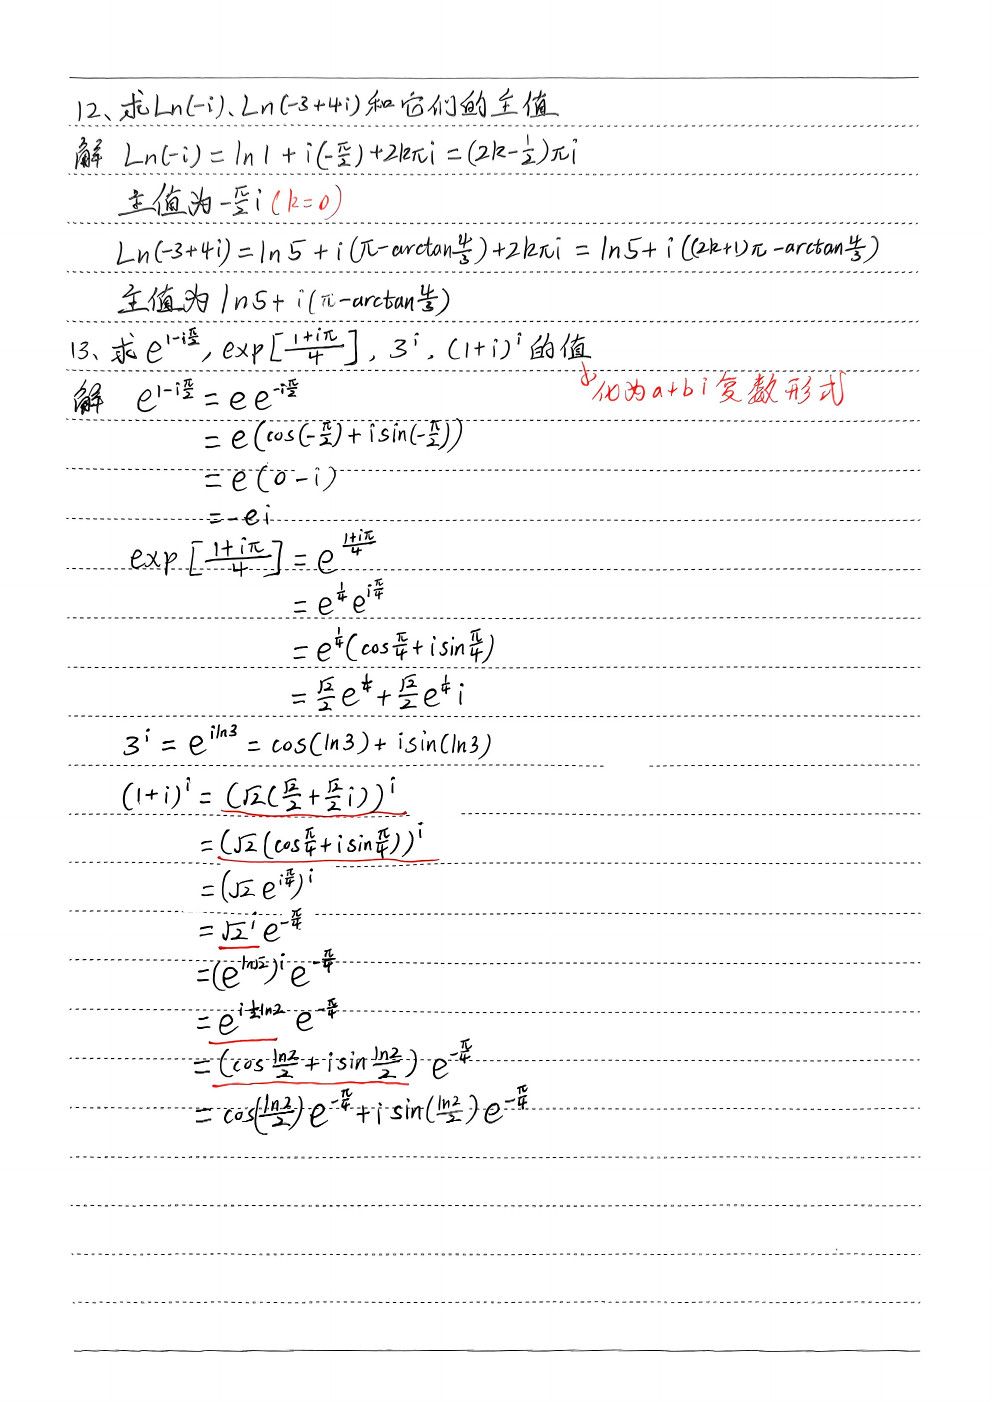 12、求Ln(-i)、Ln(-3+4i)和它们的主值
解 Ln(-i)=ln1+i(-π/2)+2kπi=(2k-1/2)πi
主值为-π/2 i(k=0)
Ln(-3+4i)=ln5+i(π-arctan4/3)+2kπi=ln5+i((2k+1)π-arctan4/3)
主值为ln5+i(π-arctan4/3)
13、求e^(1-iπ/2), exp[(1+iπ)/4], 3^i, (1+i)^i的值
↓化为a+bi复数形式
解 e^(1-iπ/2)=ee^(-iπ/2)
=e(cos(-π/2)+isin(-π/2))
=e(0-i)
=-ei
exp[(1+iπ)/4]=e^((1+iπ)/4)
=e^(1/4)e^(iπ/4)
=e^(1/4)(cosπ/4+isinπ/4)
=√2/2 e^(1/4)+√2/2 e^(1/4) i
3^i=e^(iln3)=cos(ln3)+isin(ln3)
(1+i)^i=(√2(√2/2+√2/2 i))^i
=(√2(cosπ/4+isinπ/4))^i
=(√2 e^(iπ/4))^i
=√2^i e^(-π/4)
=(e^(ln√2))^i e^(-π/4)
=e^(i1/2ln2) e^(-π/4)
=(cos ln2/2+isin ln2/2) e^(-π/4)
=cos(ln2/2)e^(-π/4)+isin(ln2/2)e^(-π/4)